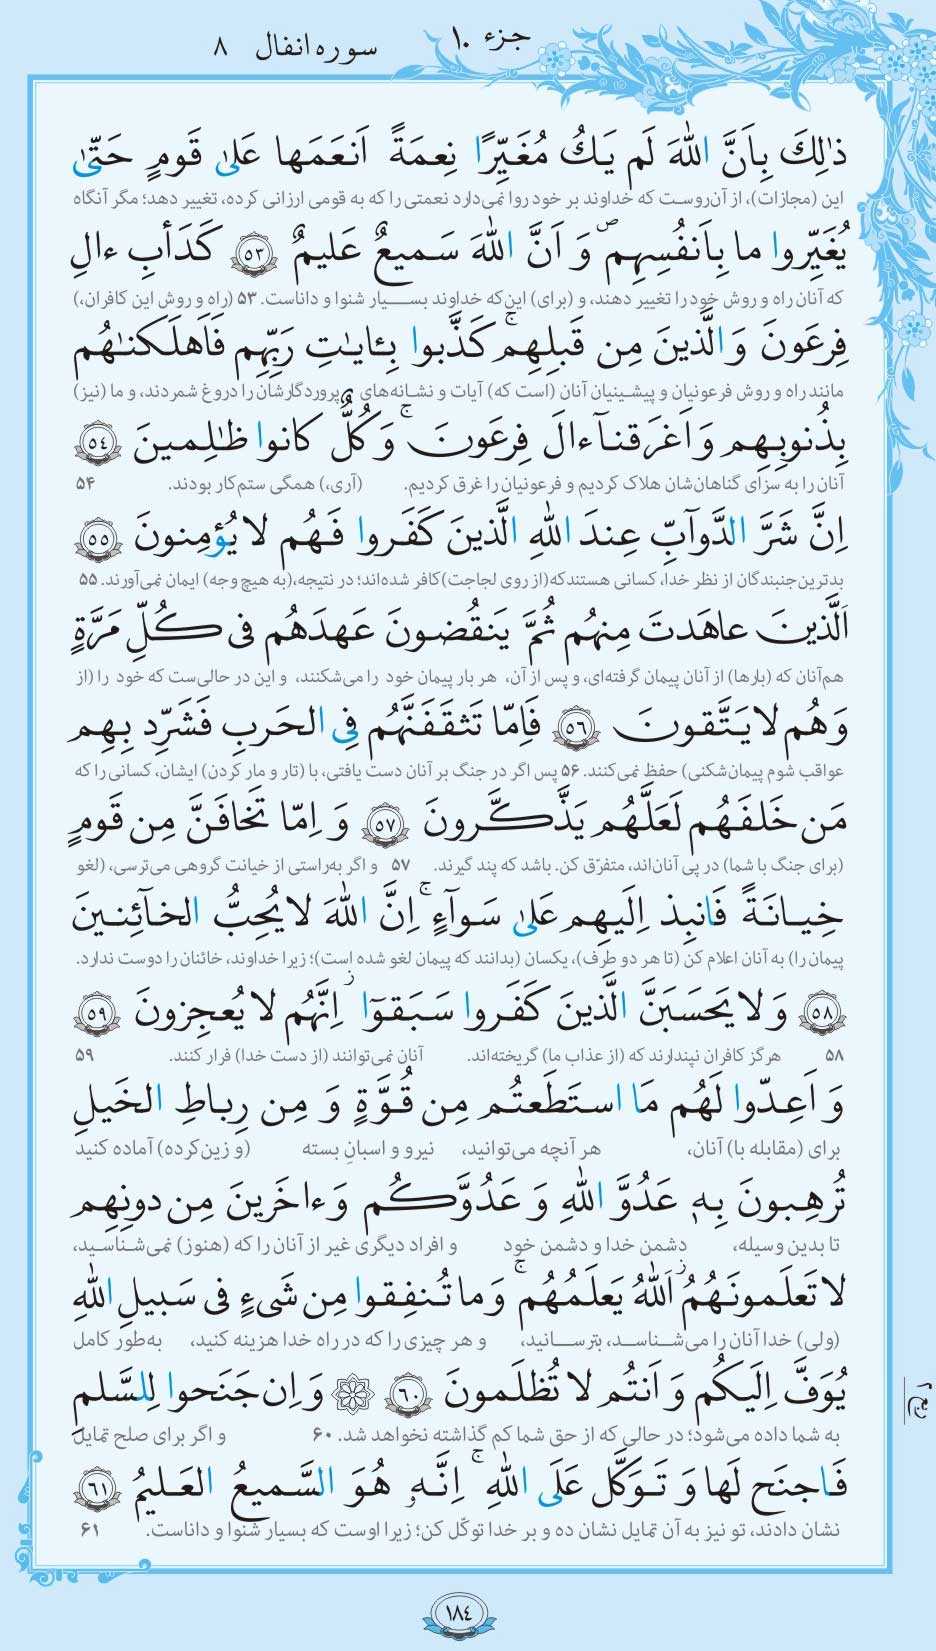 جزء ۱۰ سوره انفال ۸
ذٰلِكَ بِاَنَّ اللّٰهَ لَم يَكُ مُغَيِّرًا نِعمَةً اَنعَمَها عَلىٰ قَومٍ حَتّىٰ
این (مجازات)، از آن‌روست که خداوند بر خود روا نمی‌دارد نعمتی را که به قومی ارزانی کرده، تغییر دهد؛ مگر آنگاه
يُغَيِّروا ما بِاَنفُسِهِم ۙ وَ اَنَّ اللّٰهَ سَميعٌ عَليمٌ ﴿٥٣﴾ كَدَأبِ ءالِ
که آنان راه و روش خود را تغییر دهند، و (برای) این‌که خداوند بسیار شنوا و داناست. ۵۳ (راه و روش این کافران،)
فِرعَونَ وَالَّذينَ مِن قَبلِهِم ۚ كَذَّبوا بِـٔايٰتِ رَبِّهِم فَاَهلَكنٰهُم
مانند راه و روش فرعونیان و پیشینیان آنان (است که) آیات و نشانه‌های پروردگارشان را دروغ شمردند، و ما (نیز)
بِذُنوبِهِم وَ اَغرَقنآ ءالَ فِرعَونَ ۚ وَ كُلٌّ كانوا ظٰلِمينَ ﴿٥٤﴾
آنان را به سزای گناهان‌شان هلاک کردیم و فرعونیان را غرق کردیم. (آری،) همگی ستم‌کار بودند. ۵۴
اِنَّ شَرَّ الدَّوآبِّ عِندَ اللّٰهِ الَّذينَ كَفَروا فَهُم لا يُؤمِنونَ ﴿٥٥﴾
بدترین جنبندگان از نظر خدا، کسانی هستند که (از روی لجاجت) کافر شده‌اند؛ در نتیجه، (به هیچ وجه) ایمان نمی‌آورند. ۵۵
اَلَّذينَ عاهَدتَ مِنهُم ثُمَّ يَنقُضونَ عَهدَهُم فى كُلِّ مَرَّةٍ
هم‌آنان که (بارها) از آنان پیمان گرفته‌ای، و پس از آن، هر بار پیمان خود را می‌شکنند، و این در حالی‌ست که خود را (از
وَ هُم لا يَتَّقونَ ﴿٥٦﴾ فَاِمّا تَثقَفَنَّهُم فِى الحَربِ فَشَرِّد بِهِم
عواقب شوم پیمان‌شکنی) حفظ نمی‌کنند. ۵۶ پس اگر در جنگ بر آنان دست یافتی، با (تار و مار کردن) ایشان، کسانی را که
مَن خَلفَهُم لَعَلَّهُم يَذَّكَّرونَ ﴿٥٧﴾ وَ اِمّا تَخافَنَّ مِن قَومٍ
(برای جنگ با شما) در پی آنان‌اند، متفرّق کن. باشد که پند گیرند. ۵۷ و اگر به‌راستی از خیانت گروهی می‌ترسی، (لغو
خِيانَةً فَانبِذ اِلَيهِم عَلىٰ سَوآءٍ ۚ اِنَّ اللّٰهَ لا يُحِبُّ الخآئِنينَ
پیمان را) به آنان اعلام کن (تا هر دو طرف)، یکسان (بدانند که پیمان لغو شده است)؛ زیرا خداوند، خائنان را دوست ندارد.
﴿٥٨﴾ وَ لا يَحسَبَنَّ الَّذينَ كَفَروا سَبَقوٓا ۚ اِنَّهُم لا يُعجِزونَ ﴿٥٩﴾
۵۸ هرگز کافران نپندارند که (از عذاب ما) گریخته‌اند. آنان نمی‌توانند (از دست خدا) فرار کنند. ۵۹
وَ اَعِدّوا لَهُم مَا استَطَعتُم مِن قُوَّةٍ وَ مِن رِباطِ الخَيلِ
برای (مقابله با) آنان، هر آنچه می‌توانید، نیرو و اسبانِ بسته (و زین‌کرده) آماده کنید
تُرهِبونَ بِهٖ عَدُوَّ اللّٰهِ وَ عَدُوَّكُم وَ ءاخَرينَ مِن دونِهِم
تا بدین وسیله، دشمن خدا و دشمن خود و افراد دیگری غیر از آنان را که (هنوز) نمی‌شناسید،
لا تَعلَمونَهُمُ اَللّٰهُ يَعلَمُهُم ۚ وَ ما تُنفِقوا مِن شَىءٍ فى سَبيلِ اللّٰهِ
(ولی) خدا آنان را می‌شناسد، بترسانید، و هر چیزی را که در راه خدا هزینه کنید، به‌طور کامل
يُوَفَّ اِلَيكُم وَ اَنتُم لا تُظلَمونَ ﴿٦٠﴾ ۞ وَ اِن جَنَحوا لِلسَّلمِ
به شما داده می‌شود؛ در حالی که از حق شما کم گذاشته نخواهد شد. ۶۰ و اگر برای صلح تمایل
فَاجنَح لَها وَ تَوَكَّل عَلَى اللّٰهِ ۚ اِنَّهٗ هُوَ السَّميعُ العَليمُ ﴿٦١﴾
نشان دادند، تو نیز به آن تمایل نشان ده و بر خدا توکّل کن؛ زیرا اوست که بسیار شنوا و داناست. ۶۱
١٨٤